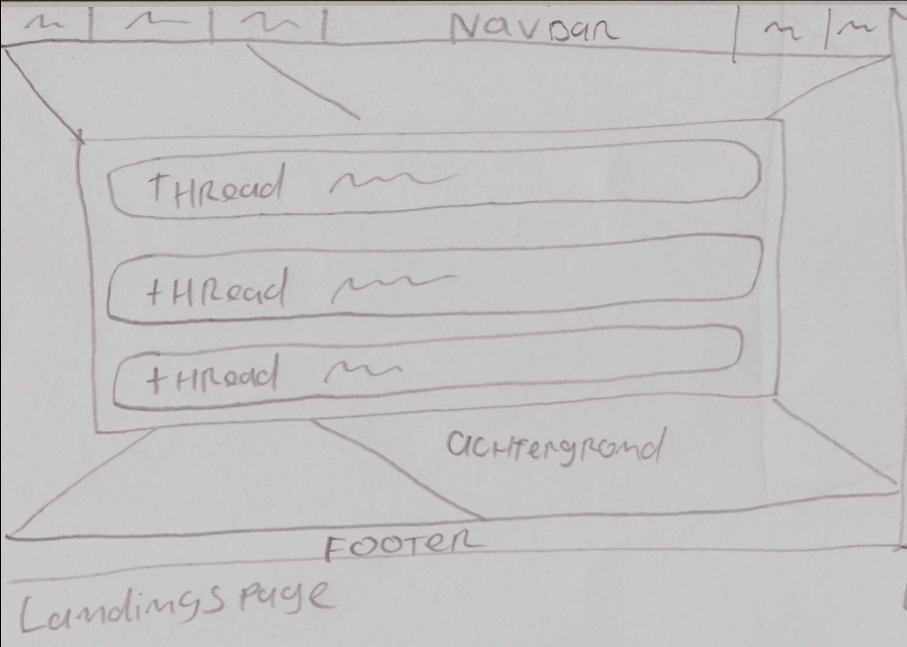 Navbar
THRead
tHRead
tHRead
acHtergrond
FOOTER
Landingspage